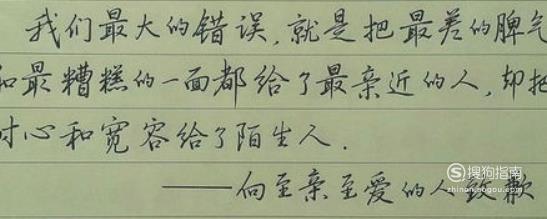 我们最大的错误,就是把最差的脾气
和最糟糕的一面都给了最亲近的人,却把
耐心和宽容给了陌生人.
——向至亲至爱的人致歉
搜狗指南
zhinan.sogou.com